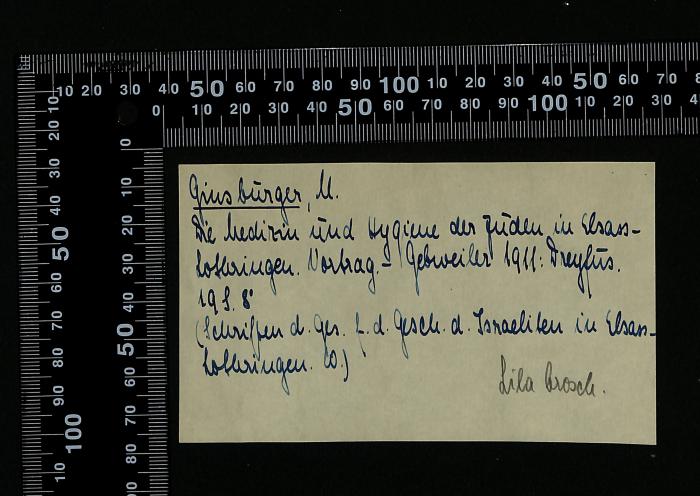 10 20 30 40 50 60 70 80 90 100 10 20 30 40 50 60 70 8
0 10 20 30 40 50 60 70 80 90 100 10 20 30 4
10 20 30 40 50 60 70 80 90 100 10
0 10 20 30 40 50 60 70 80
Ginsburger, M.
Die Medizin und Hygiene der Juden in Elsass-
Lothringen. Vortrag. - Gebweiler 1911: Dreyfus.
19 S. 8°
(Schriften d. Ges. f. d. Gesch. d. Israeliten in Elsass-
Lothringen. 10.)
Lila Brosch.